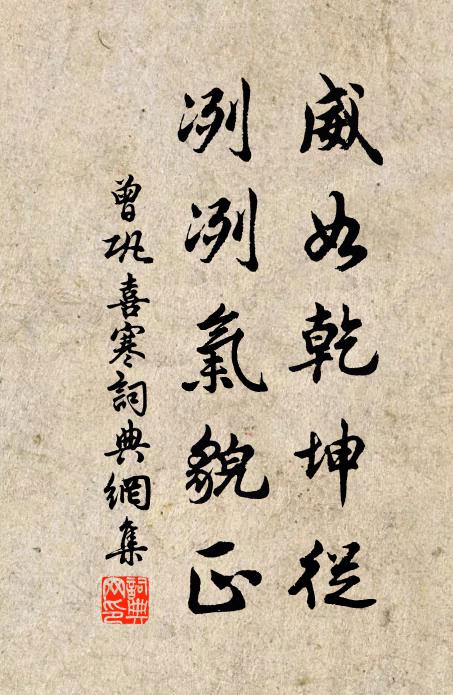 威如乾坤從
冽冽氣貌正
曾巩喜寒詞典網集
詞典网印